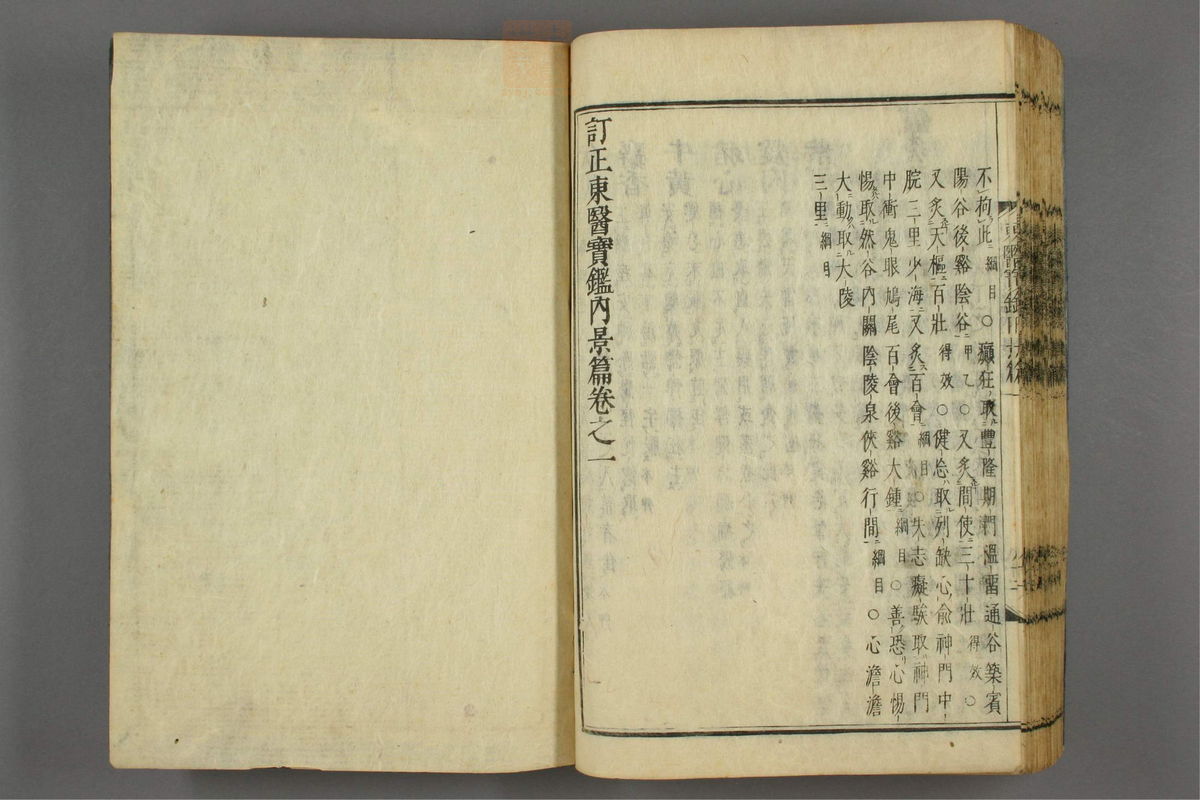 不拘此綱目○癲狂取豐隆期門溫溜通谷築賓
陽谷後谿陰谷甲乙○又灸間使三十壯得效○
又灸天樞百壯得效○健忘取列缺心俞神門中
脘三里少海又灸百會綱目○失志癡騃取神門
中衝鬼眼鳩尾百會後谿大鍾綱目○善恐心惕
惕取然谷內關陰陵泉俠谿行間綱目○心澹澹
大動取大陵
三里綱目
訂正東醫寶鑑內景篇卷之一